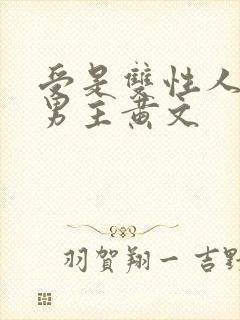 受是雙性人
男主黄文
羽賀翔一 吉野